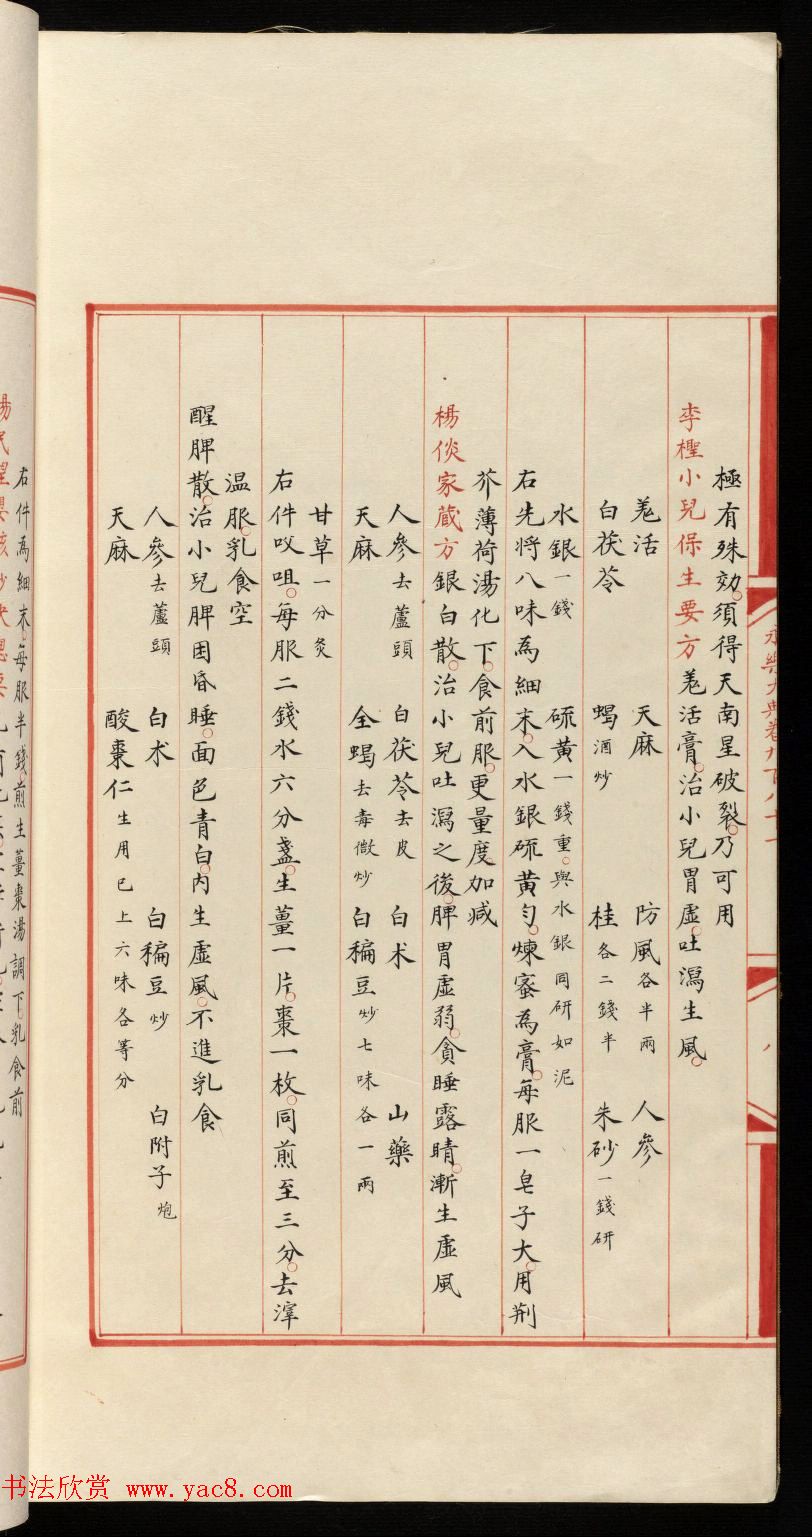 永樂大典卷九百八十一
八
極有殊効。須得天南星破裂。乃可用
李檉小兒保生要方羗活膏。治小兒胃虛。吐瀉生風。
羗活 天麻 防風各半兩 人參
白茯苓 蝎酒炒 桂各二錢半 朱砂一錢研
水銀一錢 硫黃一錢重。與水銀同研如泥
右先將八味爲細末。入水銀硫黃勻。煉蜜爲膏。每服一皂子大。用荆
芥薄荷湯化下。食前服。更量度加減
楊倓家蔵方銀白散。治小兒吐瀉之後。脾胃虛弱。貪睡露睛。漸生虛風
人參去蘆頭 白茯苓去皮 白术 山藥
天麻 全蝎去毒微炒 白稨豆炒七味各一兩
甘草一分炙
右件㕮咀。每服二錢水六分盞。生薑一片。棗一枚。同煎至三分。去滓
温服。乳食空
醒脾散。治小兒脾困昏睡。面色青白。内生虛風。不進乳食
人參去蘆頭 白术 白稨豆炒 白附子炮
天麻 酸棗仁生用已上六味各等分
右件爲細末。每服半錢煎生薑棗湯調下。乳食前
书法欣赏 www.yac8.com